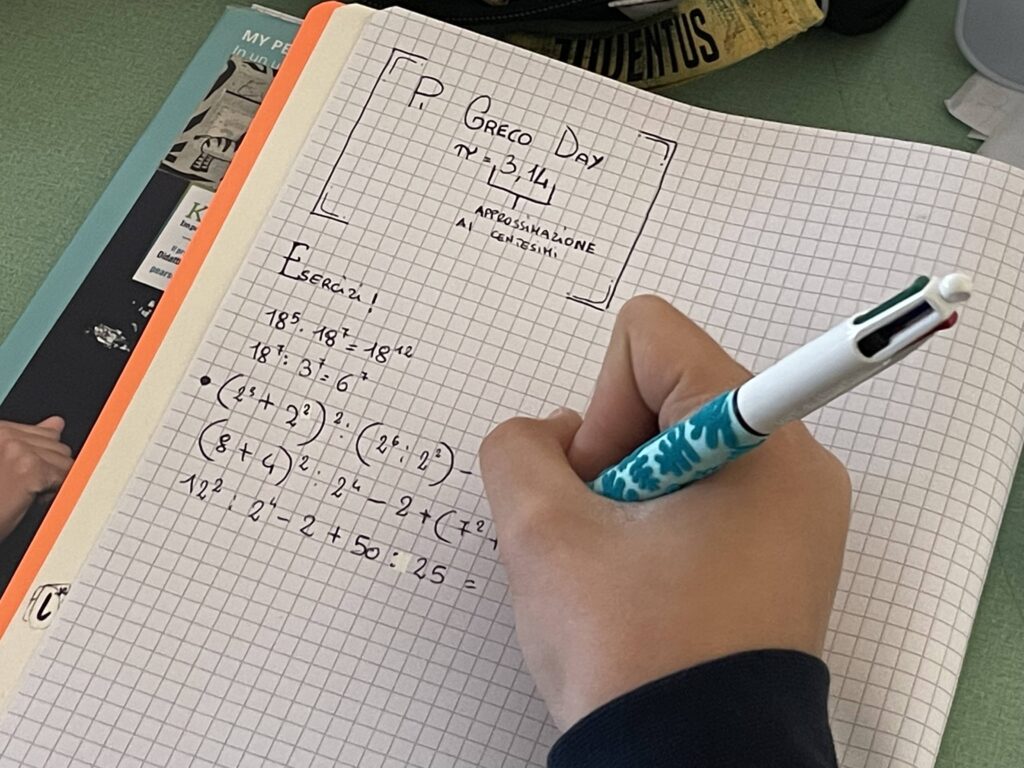 MY PE
In un u
JUVENTUS
PI GRECO DAY
π = 3,14
APPROSSIMAZIONE
AI CENTESIMI
ESERCIZI!
18⁵ · 18⁷ = 18¹²
18⁷ : 3⁷ = 6⁷
• (2³ + 2²)² : (2⁶ : 2²) -
(8 + 4)² : 2⁴ - 2 + (7² +
12² : 2⁴ - 2 + 50 : 25 =
K
Didatti